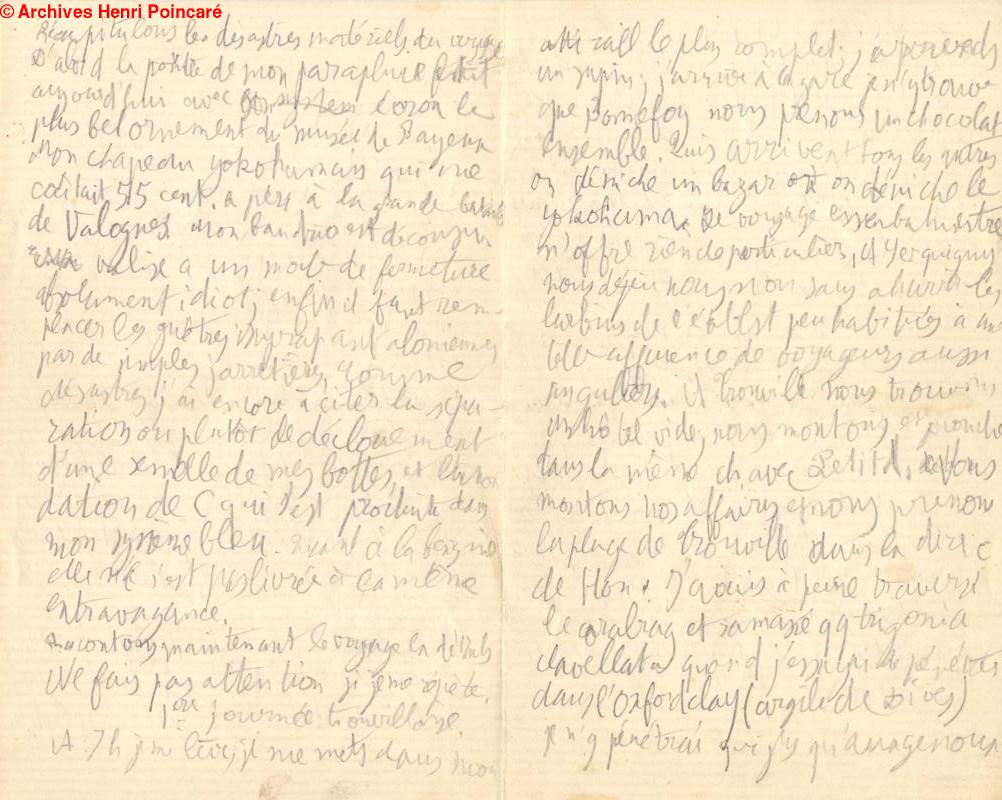 © Archives Henri Poincaré
Récapitulons les désastres matériels du voyage
D'abord la pointe de mon parapluie
aujourd'hui avec le
plus bel ornement du musée de Bayeux
Mon chapeau yokohamais qui me
coûtait 55 cent. a péri à la grande bataille
de Valognes Mon est décousu
valise a un mode de fermeture
absolument idiot; enfin il faut rem-
placer les guêtres
par de simples jarretières. Comme
désastres j'ai encore à citer la sépa-
ration ou plutôt le déclouement
d'une semelle de mes bottes, et l'inon
dation de C qui s'est produite dans
mon système bleu. Quant à la benzine
elle ne s'est pas livrée à la même
extravagance.
Racontons maintenant le voyage en détails
Ne fais pas attention si je me répète.
1ere journée trouvillaise.
A 7h je me lève, je me mets dans mon
attirail le plus complet; j'
un sapin; j'arrive à la gare je n'y trouve
que Bonnefoy nous prenons un chocolat
ensemble. Puis arrivent tous les autres
on déniche un bazar où on déniche le
yokohama. Le voyage
n'offre rien de particulier, A Serquigny
nous déjeunons non sans ahurir les
larbins de l'établst peu habitués à une
telle affluence de voyageurs aussi
singuliers. A Trouville nous trouvons
un hôtel vide, nous montons et
dans la même ch avec Petitd. Nous
montons nos affaires et nous prenons
la plage de Trouville dans la direc
de Hon. J'avais à peine traversé
le coralrag et ramassé qq trigonia
clavellata quand j'essayai de pénétrer
dans l'Oxford clay (argile de Dives)
je n'y pénétrai que jusqu'aux genoux